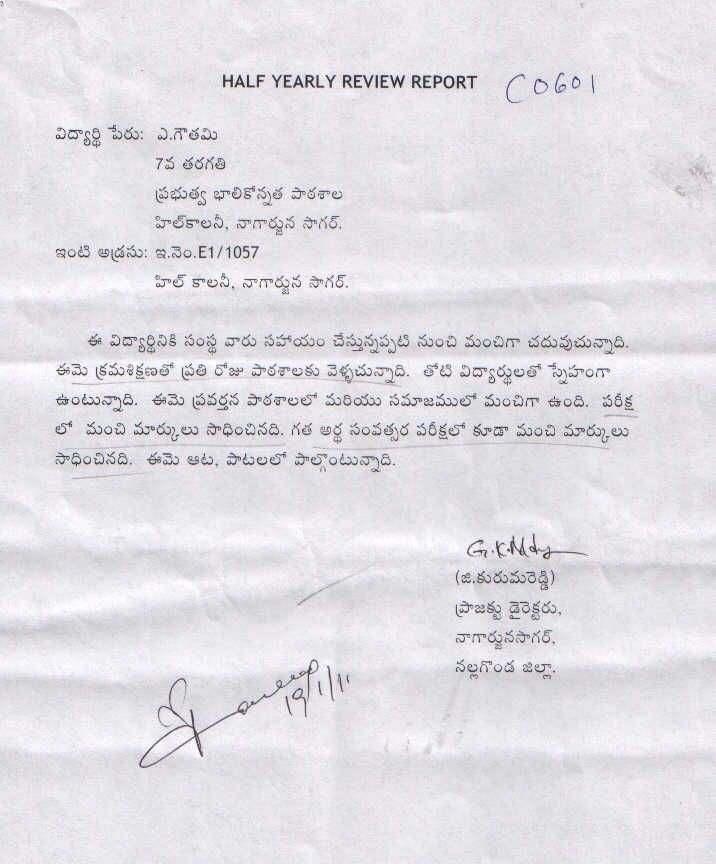 HALF YEARLY REVIEW REPORT C0601
విద్యార్థి పేరు: ఎ.గౌతమి
7వ తరగతి
ప్రభుత్వ భాలికోన్నత పాఠశాల
హిల్‌కాలనీ, నాగార్జున సాగర్.
ఇంటి అడ్రసు: ఇ.నెం.E1/1057
హిల్ కాలనీ, నాగార్జున సాగర్.
ఈ విద్యార్థినికి సంస్థ వారు సహాయం చేస్తున్నప్పటి నుంచి మంచిగా చదువుచున్నాది.
ఈమె క్రమశిక్షణతో ప్రతి రోజు పాఠశాలకు వెళ్ళచున్నాది. తోటి విద్యార్థులతో స్నేహంగా
ఉంటున్నాది. ఈమె ప్రవర్తన పాఠశాలలో మరియు సమాజములో మంచిగా ఉంది. పరీక్ష
లో మంచి మార్కులు సాధించినది. గత అర్థ సంవత్సర పరీక్షలో కూడా మంచి మార్కులు
సాధించినది. ఈమె ఆట, పాటలలో పాల్గొంటున్నాది.
(జి.కురుమరెడ్డి)
ప్రాజక్టు డైరెక్టరు,
నాగార్జునసాగర్,
నల్లగొండ జిల్లా.
19/1/11